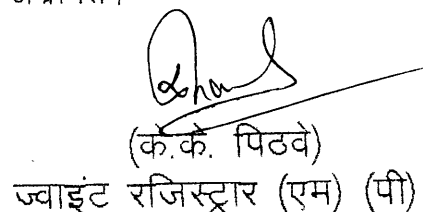 (के.के. पिठवे)
ज्वाइंट रजिस्ट्रार (एम) (पी)